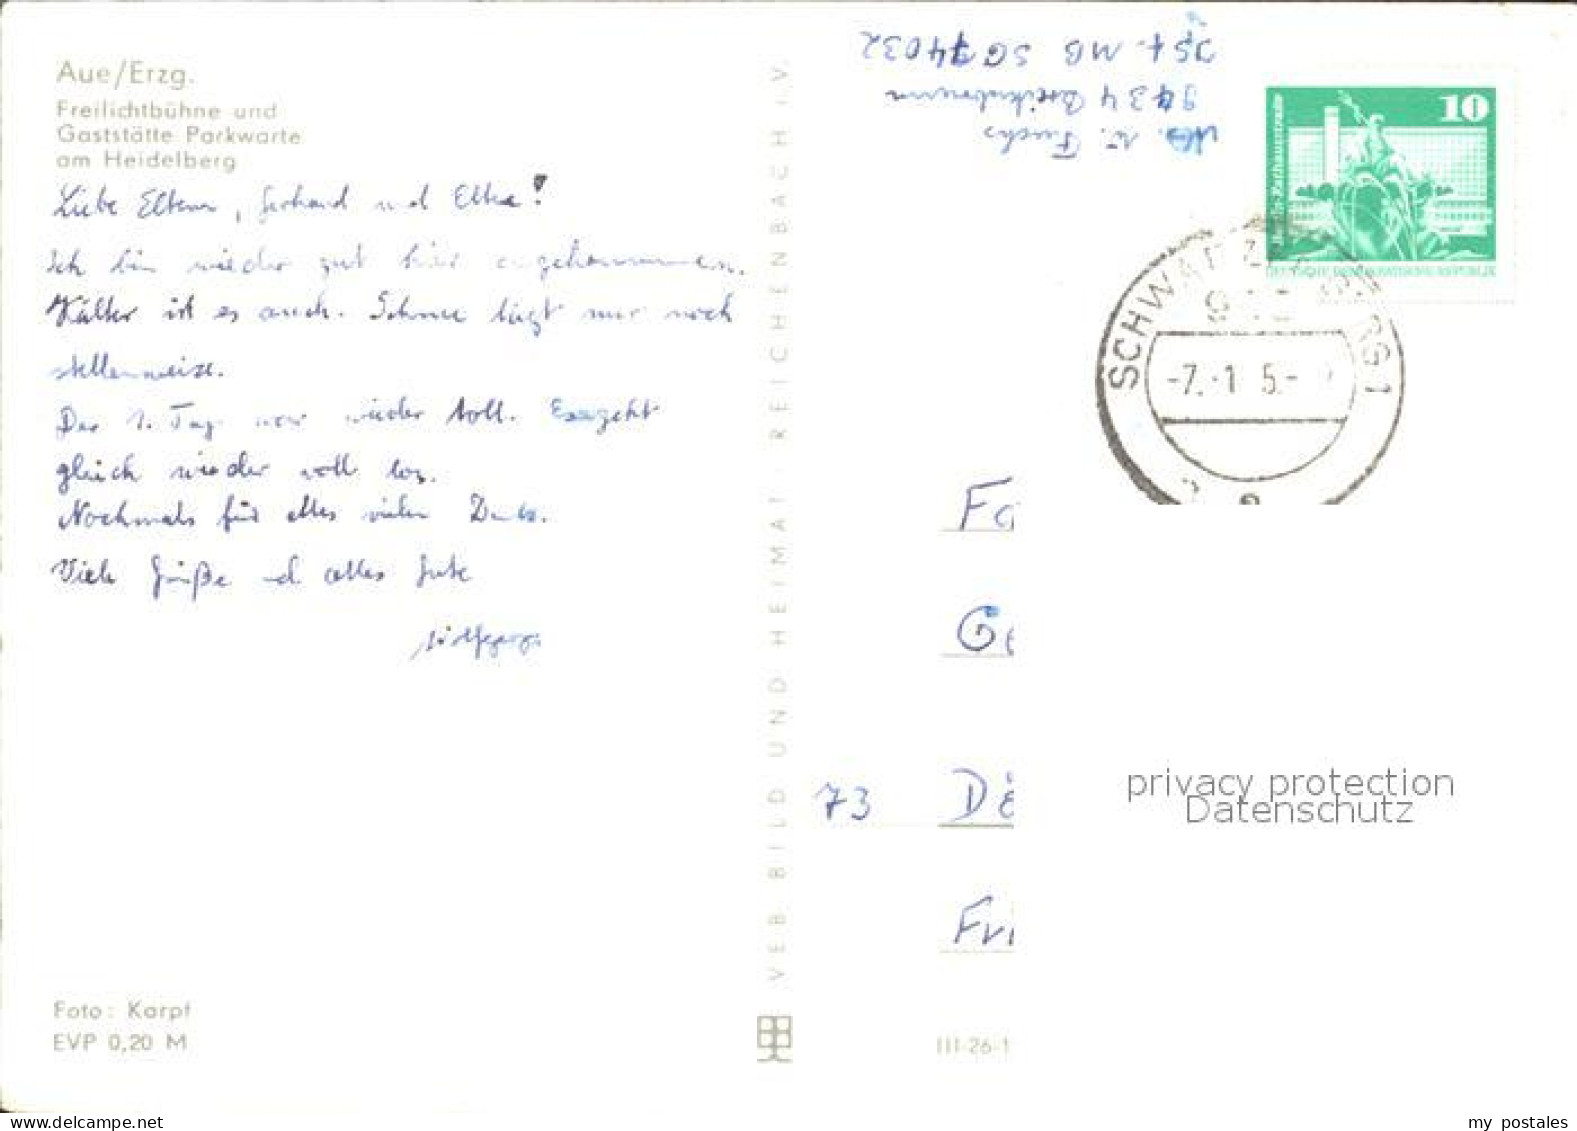 Aue/Erzg.
Freilichtbühne und
Gaststätte Parkwarte
am Heidelberg
Liebe Eltern, Gerhard und Elke!
Ich bin wieder gut hier angekommen.
Kälter ist es auch. Schnee liegt nur noch
stellenweise.
Der 1. Tag war wieder toll. Es geht
gleich wieder voll los.
Nochmals für alles vielen Dank.
Viele Grüße und alles Gute
Wolfgang
Foto: Karpf
EVP 0,20 M
VEB BILD UND HEIMAT REICHENBACH I. V.
III-26-1
W. Fuchs
9434 Breitenbrunn
PSF. MB SG 74032
10
DEUTSCHE DEMOKRATISCHE REPUBLIK
SCHWARZENBERG 1
-7.-1 5.-
Fa
Ge
73 Dö
Fri
privacy protection
Datenschutz
my postales